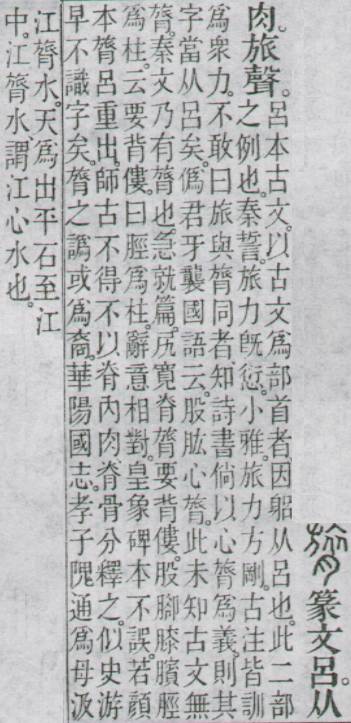 篆文呂。从
肉。旅聲。
呂本古文。以古文爲部首者。因躳从呂也。此二部
之例也。秦誓。旅力旣愆。小雅。旅力方剛。古注皆訓
爲衆力。不敢曰旅與膂同者。知詩書倘以心膂爲義。則其
字當从呂矣。僞君牙襲國語云。股肱心膂。此未知古文無
膂。秦文乃有膂也。急就篇。尻寬脊膂要背僂。股腳膝臏脛
爲柱。云要背僂。曰脛爲柱。辭意相對。皇象碑本不誤。若顏
本膂呂重出。師古不得不以脊內肉脊骨分釋之。似史游
早不識字矣。膂之譌或爲裔。華陽國志。孝子隗通爲母汲
江膂水。天爲出平石至江
中。江膂水。謂江心水也。